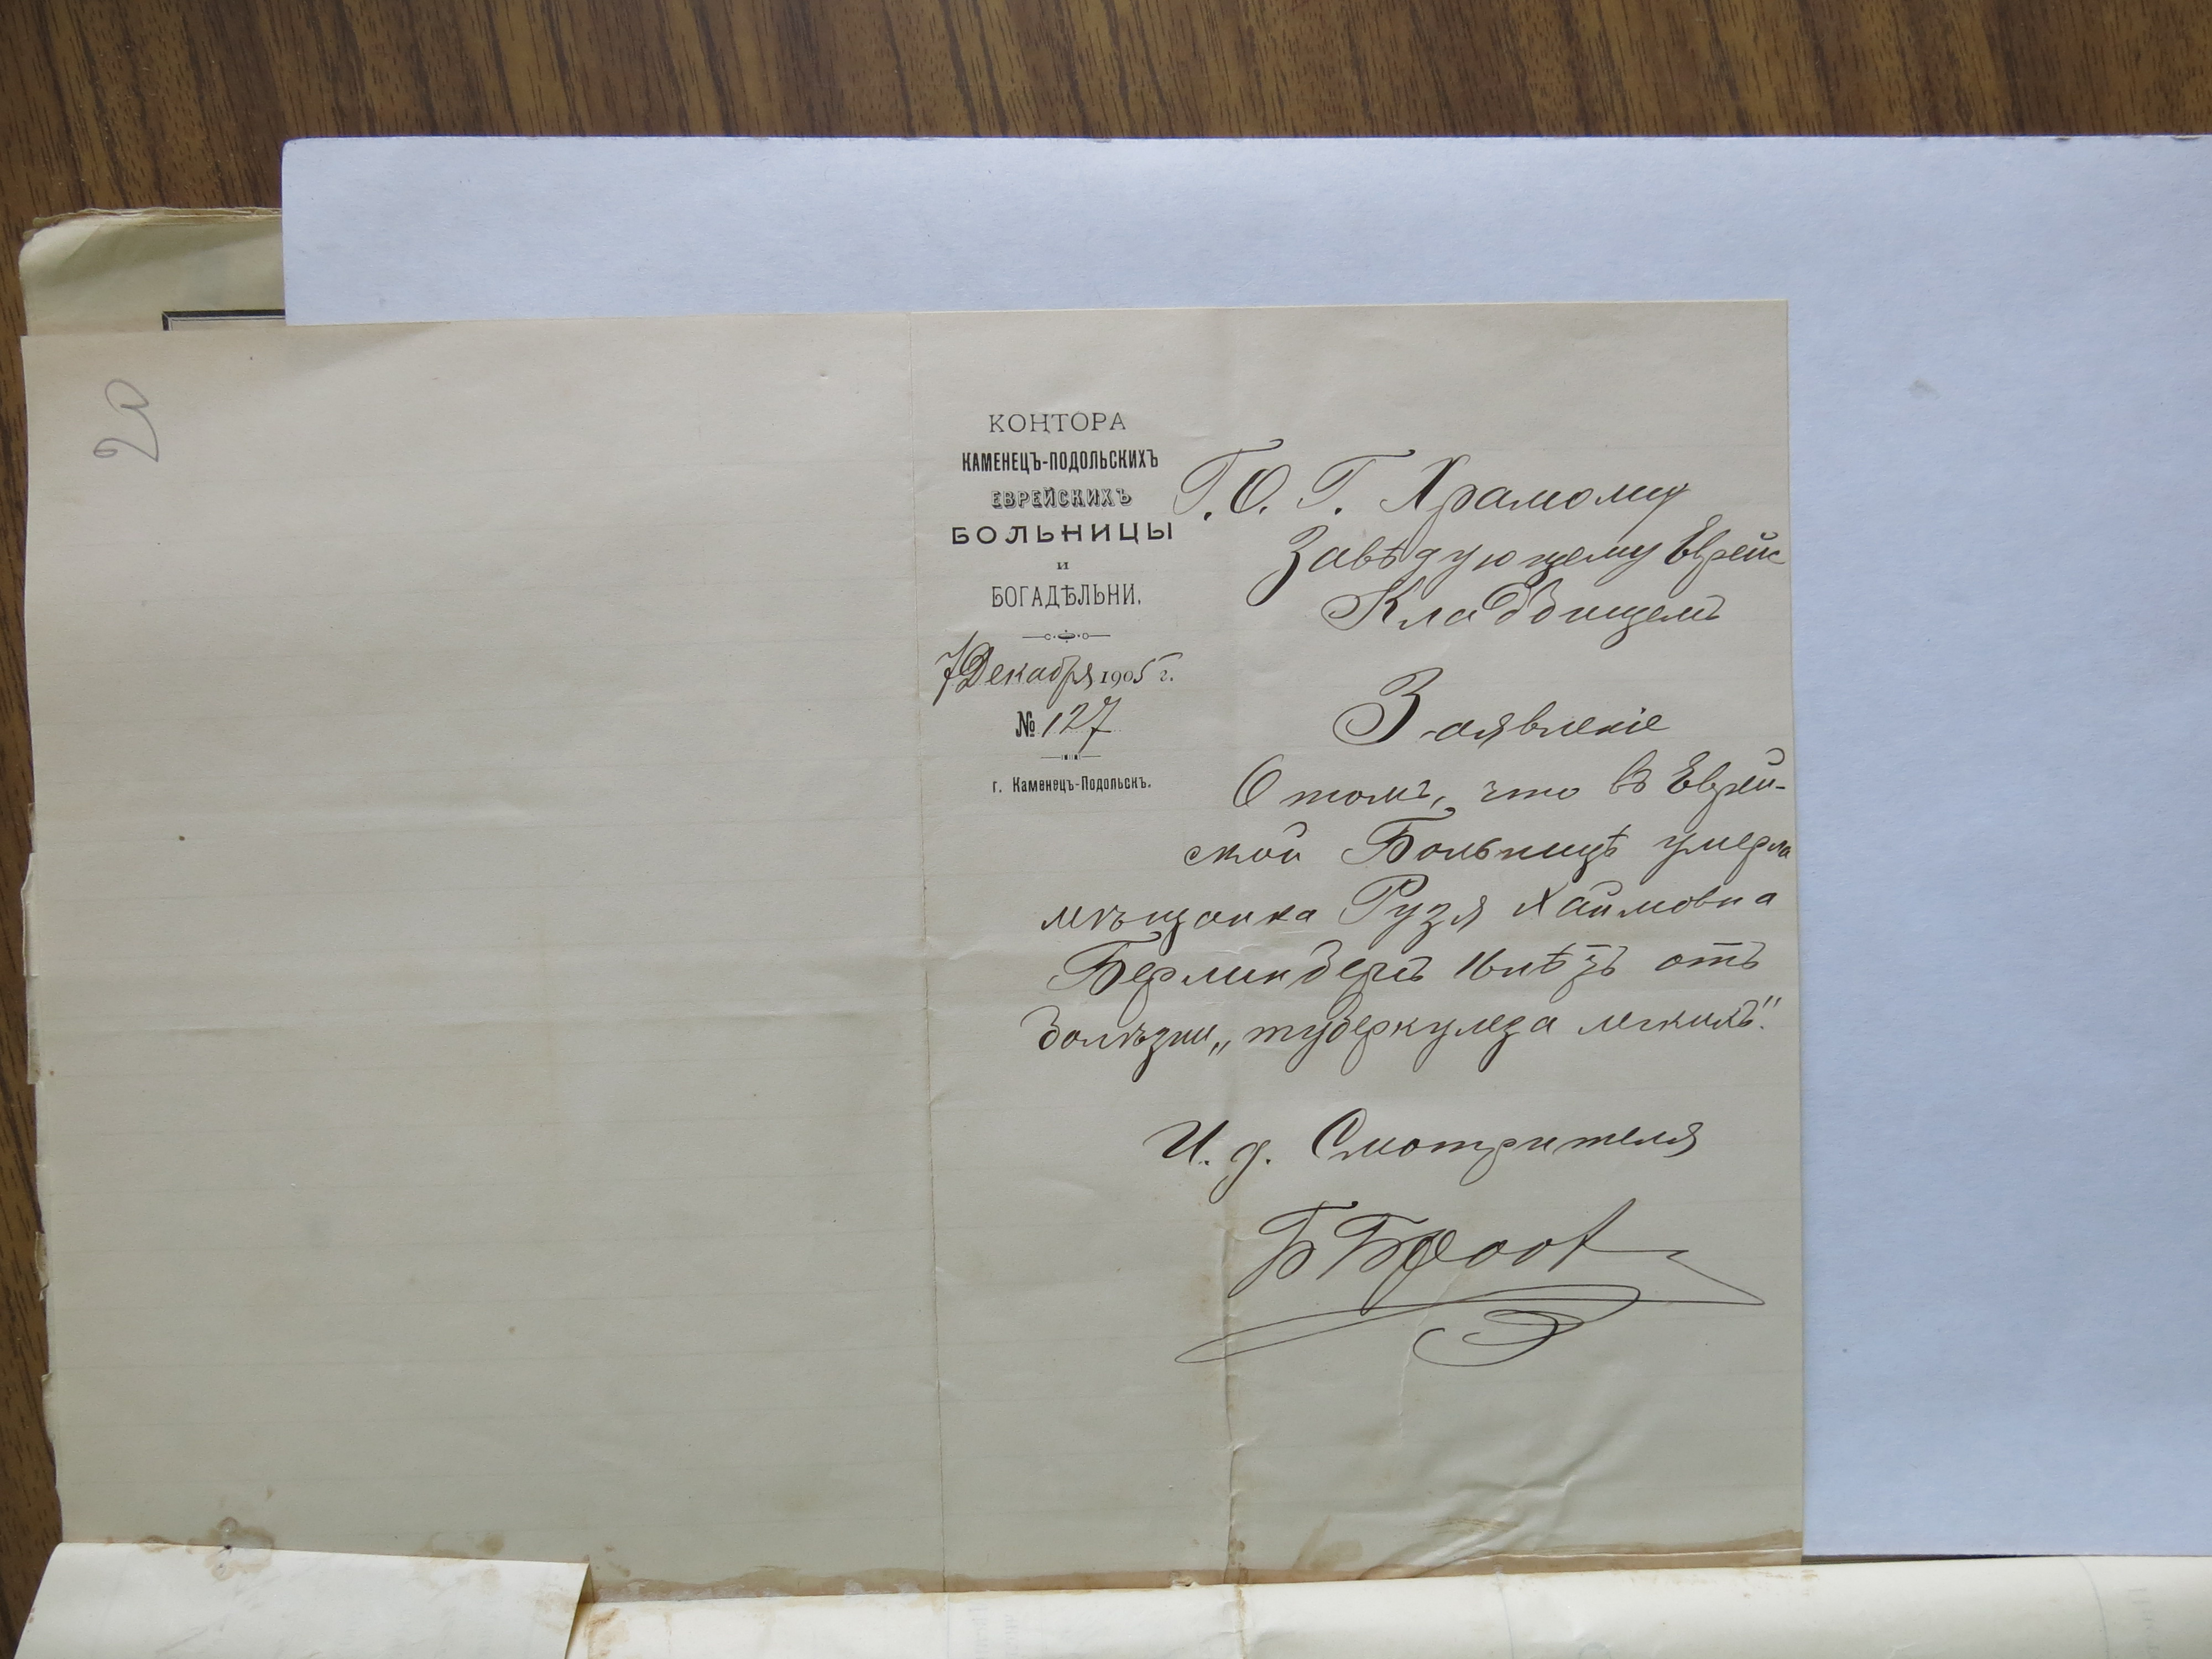 20
КОНТОРА
КАМЕНЕЦЪ-ПОДОЛЬСКИХЪ
ЕВРЕЙСКИХЪ
БОЛЬНИЦЫ
и
БОГАДѢЛЬНИ.
7 Декабря 1905 г.
№ 127
г. Каменецъ-Подольскъ.
Г. О. Г. Храмому
Завѣдующему Еврейс
Кладбищемъ
Заявленіе
О томъ, что въ Еврей-
ской Больницѣ умерла
мѣщанка Рузя Хаимовна
Берлиндеръ 16 лѣтъ отъ
болѣзни „туберкулеза легкихъ".
И. д. Смотрителя